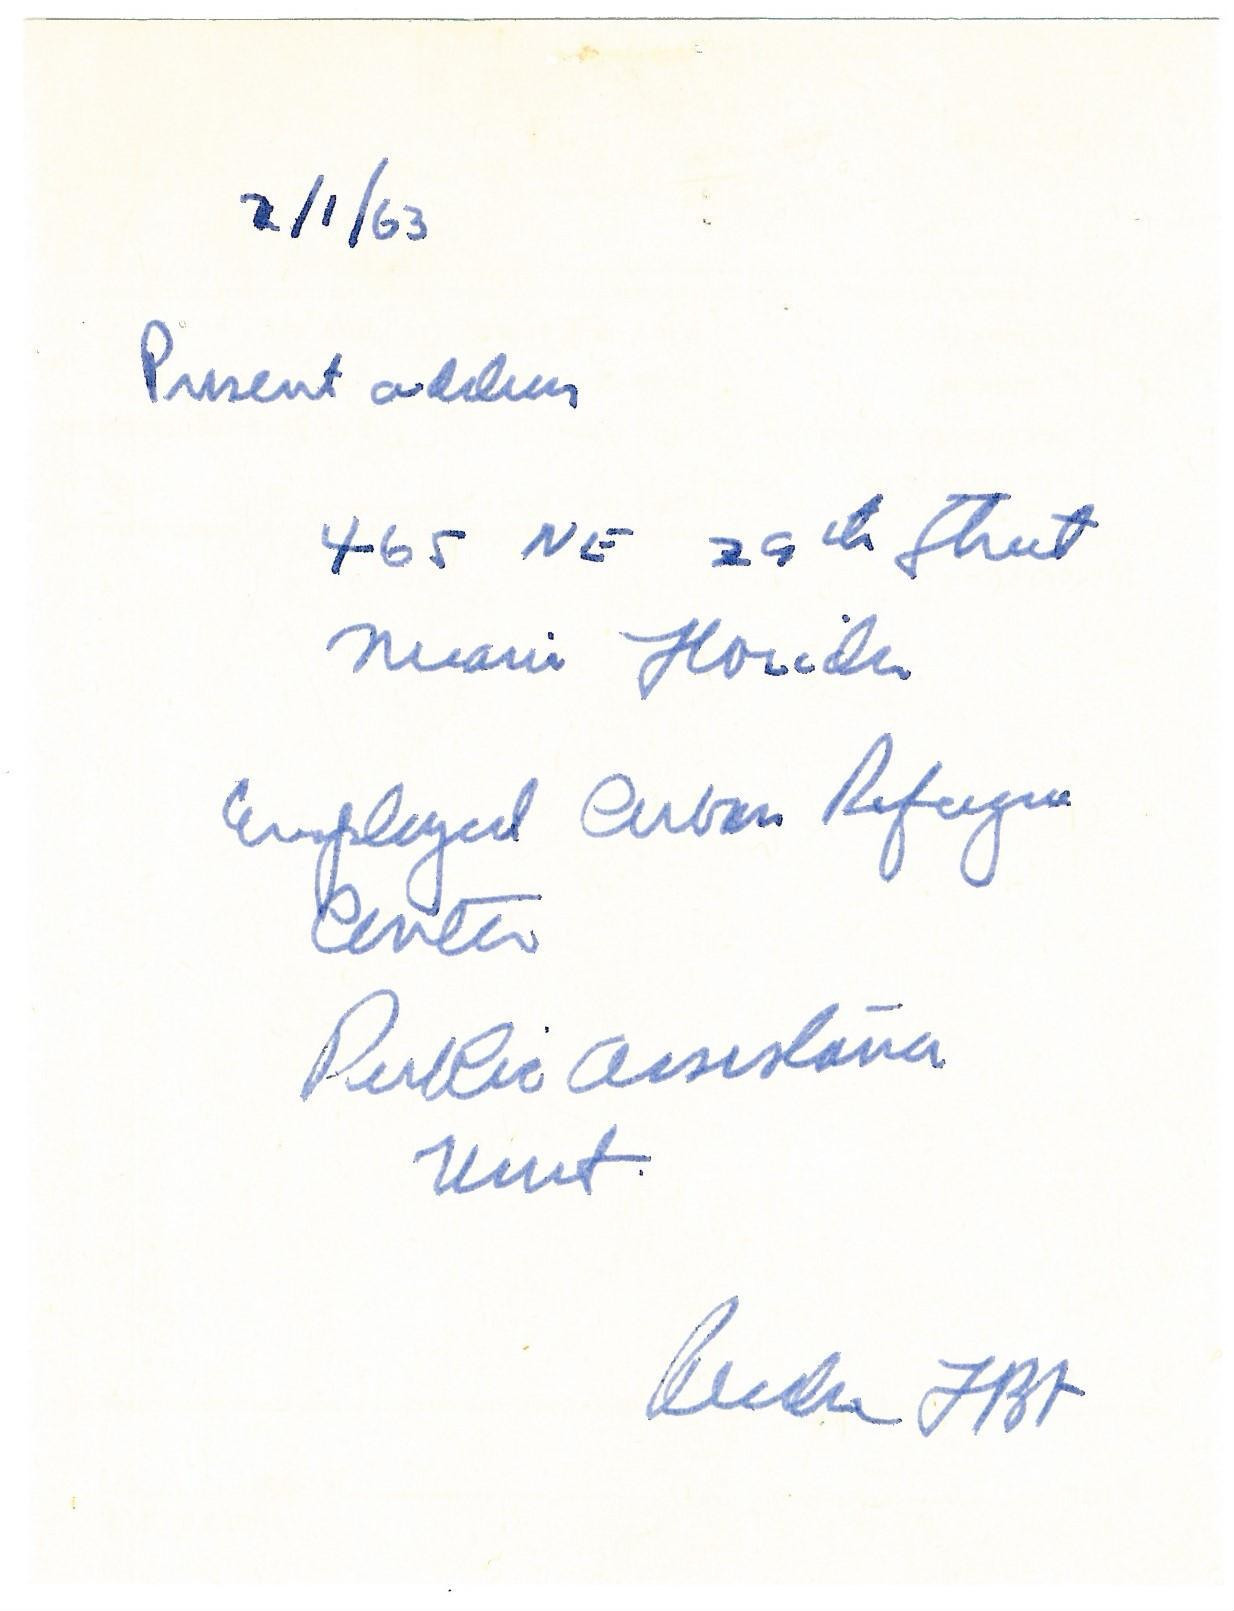 2/1/63
Present address
465 NE 29th Street
Miami Florida
Employed Cuban Refugee
Center
Public Assistance
Unit.
FBI